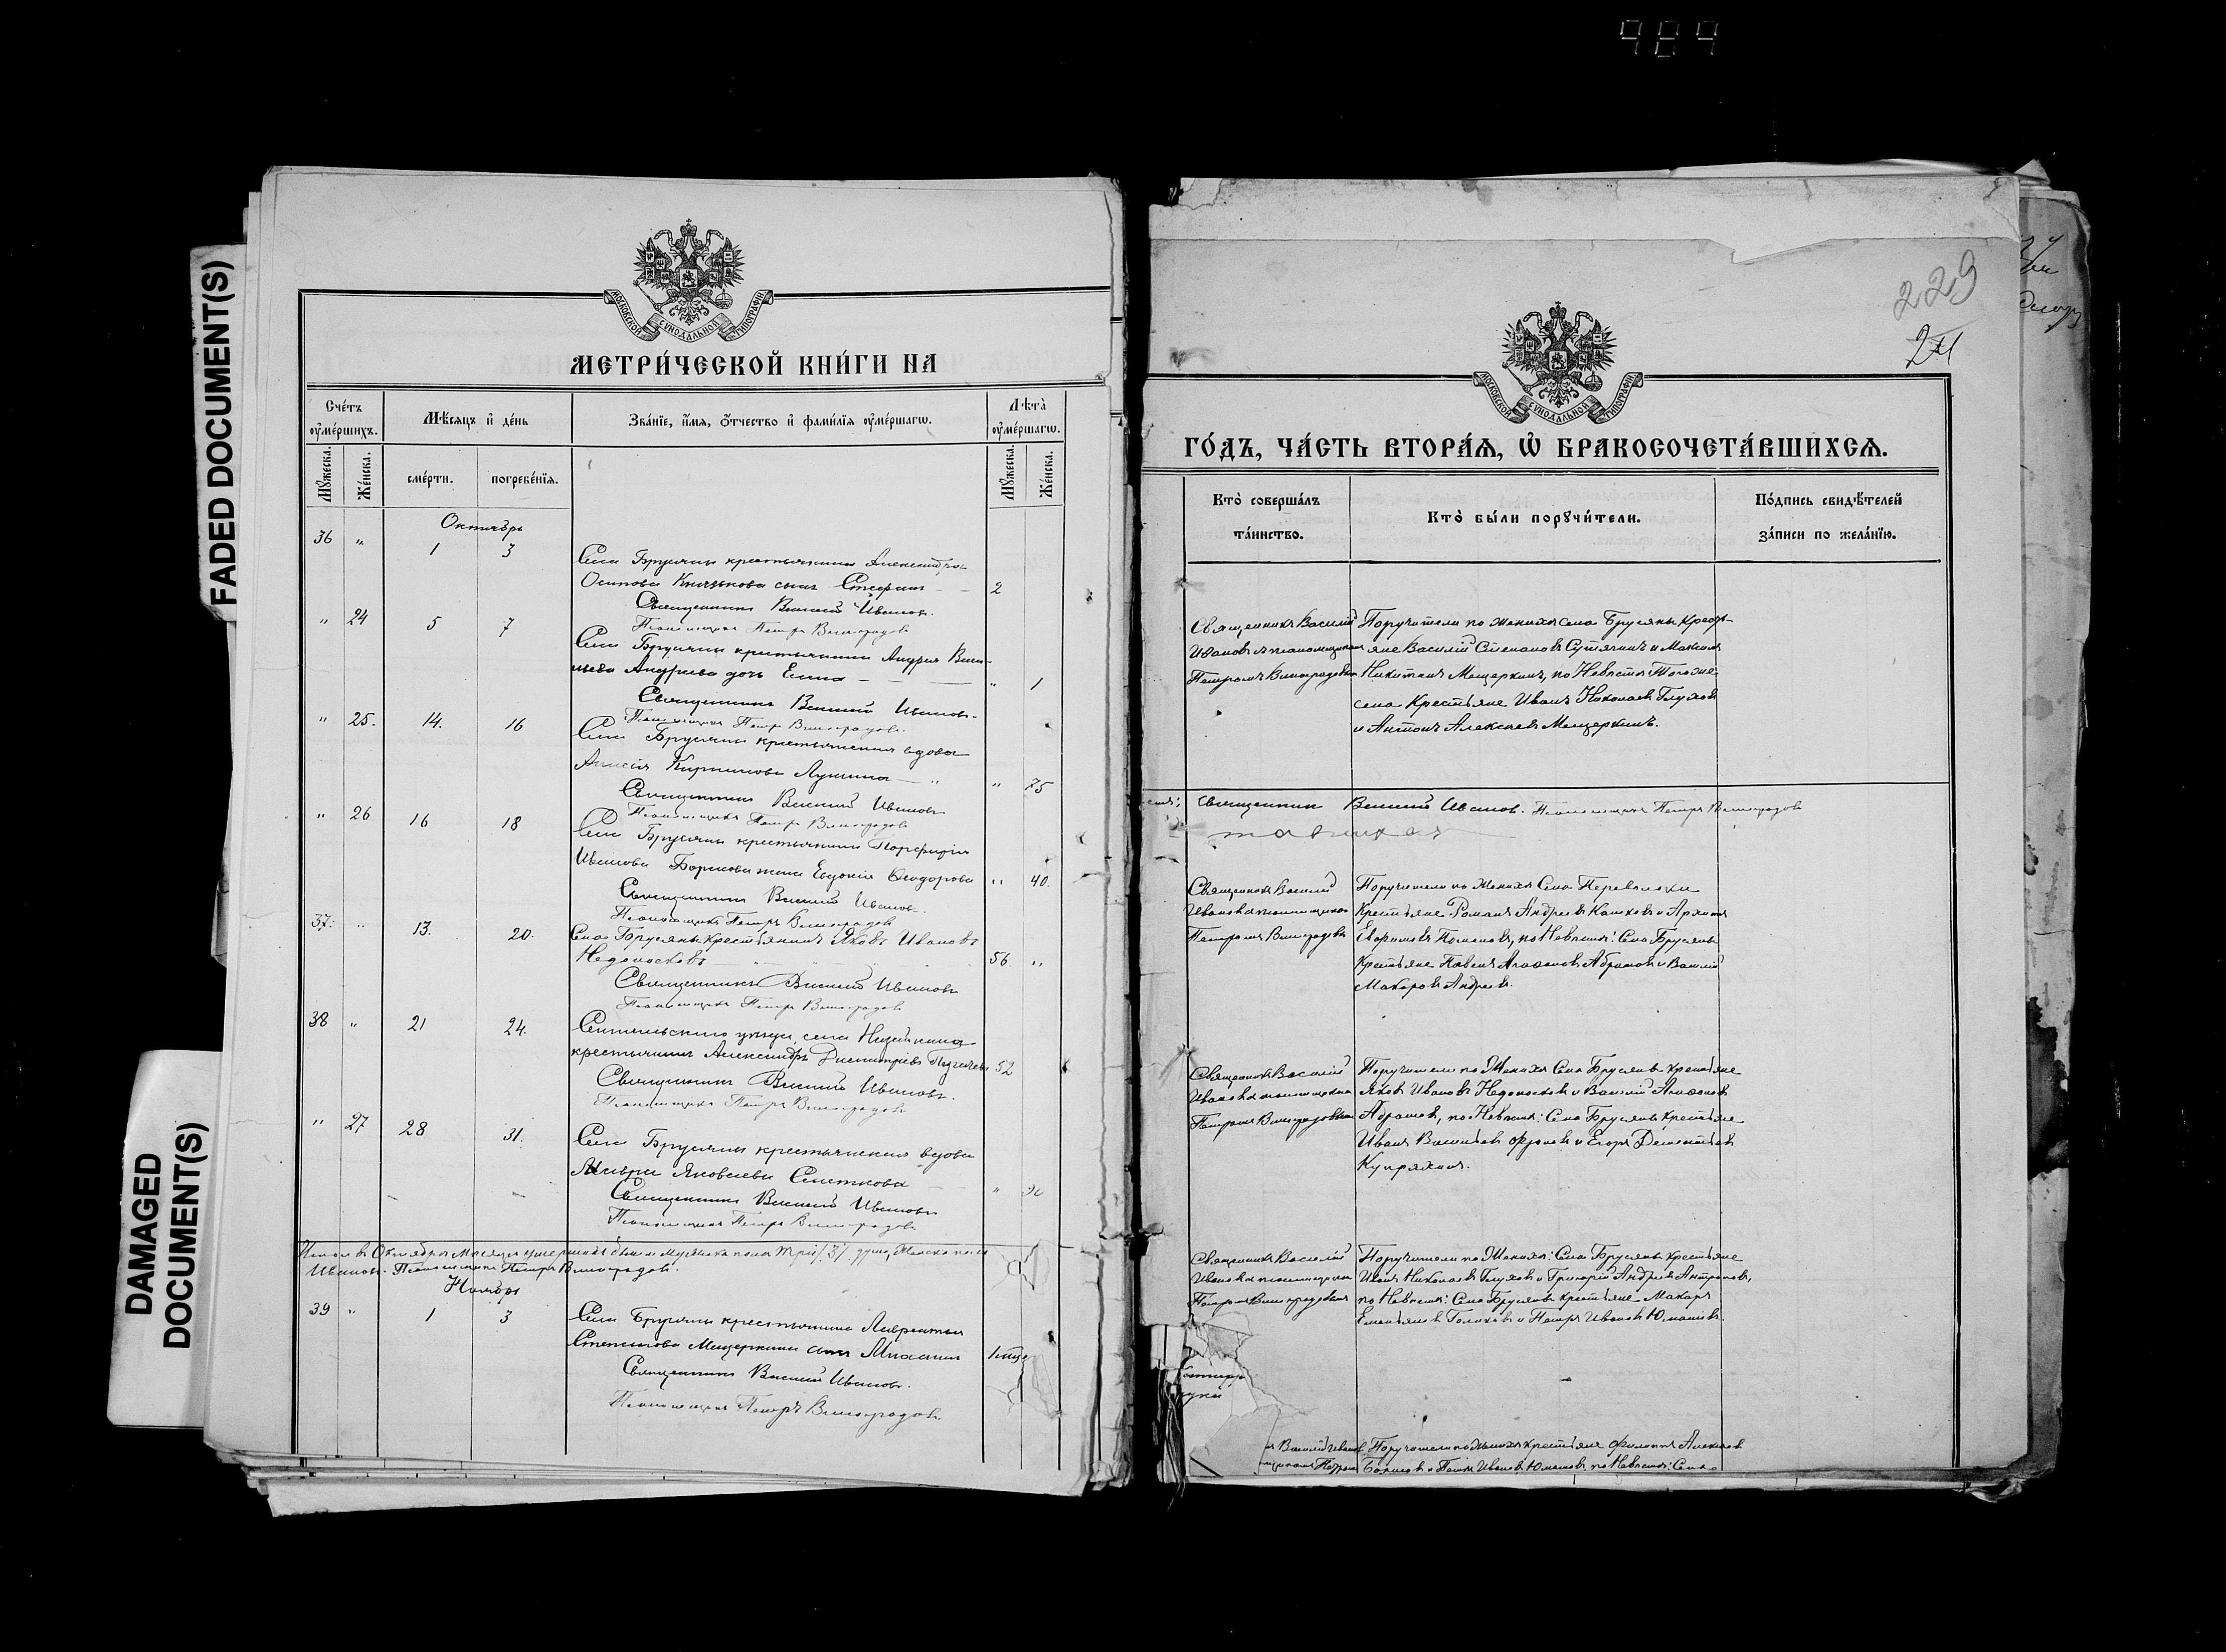 989
FADED DOCUMENT(S)
DAMAGED
DOCUMENT(S)
МОСКОВСКОЙ СѴНОДАЛЬНОЙ ТИПОГРАФІИ
МЕТРИ́ЧЕСКОЙ КНИ́ГИ НА
Сче́тъ ᲂу҆ме́ршихъ.
Мѣ́сяцъ и҆ де́нь
Зва́нїе, и҆́мѧ, ѻ҆́тчество и҆ фами́лїѧ ᲂу҆ме́ршагѡ.
Лѣта̀ ᲂу҆ме́ршагѡ.
Мꙋ́жеска.
Же́нска.
сме́рти.
погребе́нїѧ.
Мꙋ́жеска.
Же́нска.
Октябрь
36 " 1 3
Села Брусяны крестьянина Александра
Осипова Князькова сынъ Стефанъ 2
Священникъ Василій Ивановъ.
Псаломщикъ Петръ Виноградовъ
" 24 5 7
Села Брусяны крестьянина Андрея Васи-
льева Андреева дочь Елена " 1
Священникъ Василій Ивановъ.
Псаломщикъ Петръ Виноградовъ.
" 25. 14. 16
Села Брусяны крестьянская вдова
Анисія " 75
Священникъ Василій Ивановъ
Псаломщикъ Петръ Виноградовъ
" 26 16 18
Села Брусяны крестьянина Порфирія
Иванова Борисова жена Евдокія Ѳеодорова " 40.
Священникъ Василій Ивановъ.
Псаломщикъ Петръ Виноградовъ
37. " 13. 20.
Села Брусяны Крестьянинъ Яковъ Ивановъ
Недоносковъ 56 "
Священникъ Василій Ивановъ
Псаломщикъ Петръ Виноградовъ
38 " 21 24.
уѣзда, села
крестьянинъ Александръ Димитріевъ 52
Священникъ Василій Ивановъ.
Псаломщикъ Петръ Виноградовъ
" 27 28 31.
Села Брусяны крестьянская вдова
Яковлева " 90
Священникъ Василій Ивановъ
Псаломщикъ Петръ Виноградовъ
Октябрѣ мѣсяцѣ умершихъ было мужеска пола три /3/ душ, женска пола
Ивановъ. Псаломщикъ Петръ Виноградовъ.
Ноябрь
39 " 1 3
Села Брусяны крестьянина Лаврентія
Степанова Мещеркина сынъ Михаилъ
Священникъ Василій Ивановъ.
Псаломщикъ Петръ Виноградовъ.
229
МОСКОВСКОЙ СѴНОДАЛЬНОЙ ТИПОГРАФІИ
ГО́ДЪ, ЧА́СТЬ ВТОРА́Ѧ, Ѡ҆ БРАКОСОЧЕТА́ВШИХСѦ.
Кто̀ соверша́лъ та́инство.
Кто̀ бы́ли порꙋчи́тели.
По́дпись свидѣ́телей за́писи по жела́нїю.
Священникъ Василій
Ивановъ съ псаломщикомъ
Петромъ Виноградовымъ
Поручители по женихѣ села Брусяны Кресть-
яне Василій Степановъ Сутягинъ и Максимъ
Никитинъ Мещеркинъ, по Невѣстѣ Того же
села Крестьяне Иванъ Николаевъ Глуховъ
и Антонъ Алексѣевъ Мещеркинъ.
Священникъ Василій Ивановъ. Псаломщикъ Петръ Виноградовъ
Священникъ Василій
Ивановъ съ псаломщикомъ
Петромъ Виноградовымъ
Поручители по Женихѣ Села Переволоки
Крестьяне Романъ Андреевъ и Архипъ
по Невѣстѣ: Села Брусяны
Крестьяне Павелъ Агафоновъ Абрамовъ и Василій
Макаровъ Андреевъ.
Священникъ Василій
Ивановъ съ псаломщикомъ
Петромъ Виноградовымъ
Поручители по Женихѣ Села Брусяны Крестьяне
Яковъ Ивановъ Недоносковъ и Василій Агафоновъ
Абрамовъ, по Невѣстѣ: Села Брусяны Крестьяне
Иванъ Васильевъ Фроловъ и Егоръ Дементьевъ
Купряхинъ.
Священникъ Василій
Ивановъ съ псаломщикомъ
Петромъ Виноградовымъ
Поручители по Женихѣ: Села Брусяны Крестьяне
Иванъ Николаевъ Глуховъ и Григорій Андреевъ Антроповъ,
по Невѣстѣ: Села Брусяны крестьяне Макаръ
Емельяновъ Голиковъ и Петръ Ивановъ Юмашевъ.
Василій Ивановъ
Петромъ
Поручители по женихѣ крестьяне Филиппъ Алексѣевъ
Борисовъ и Петръ Ивановъ Юмашевъ по Невѣстѣ: Села